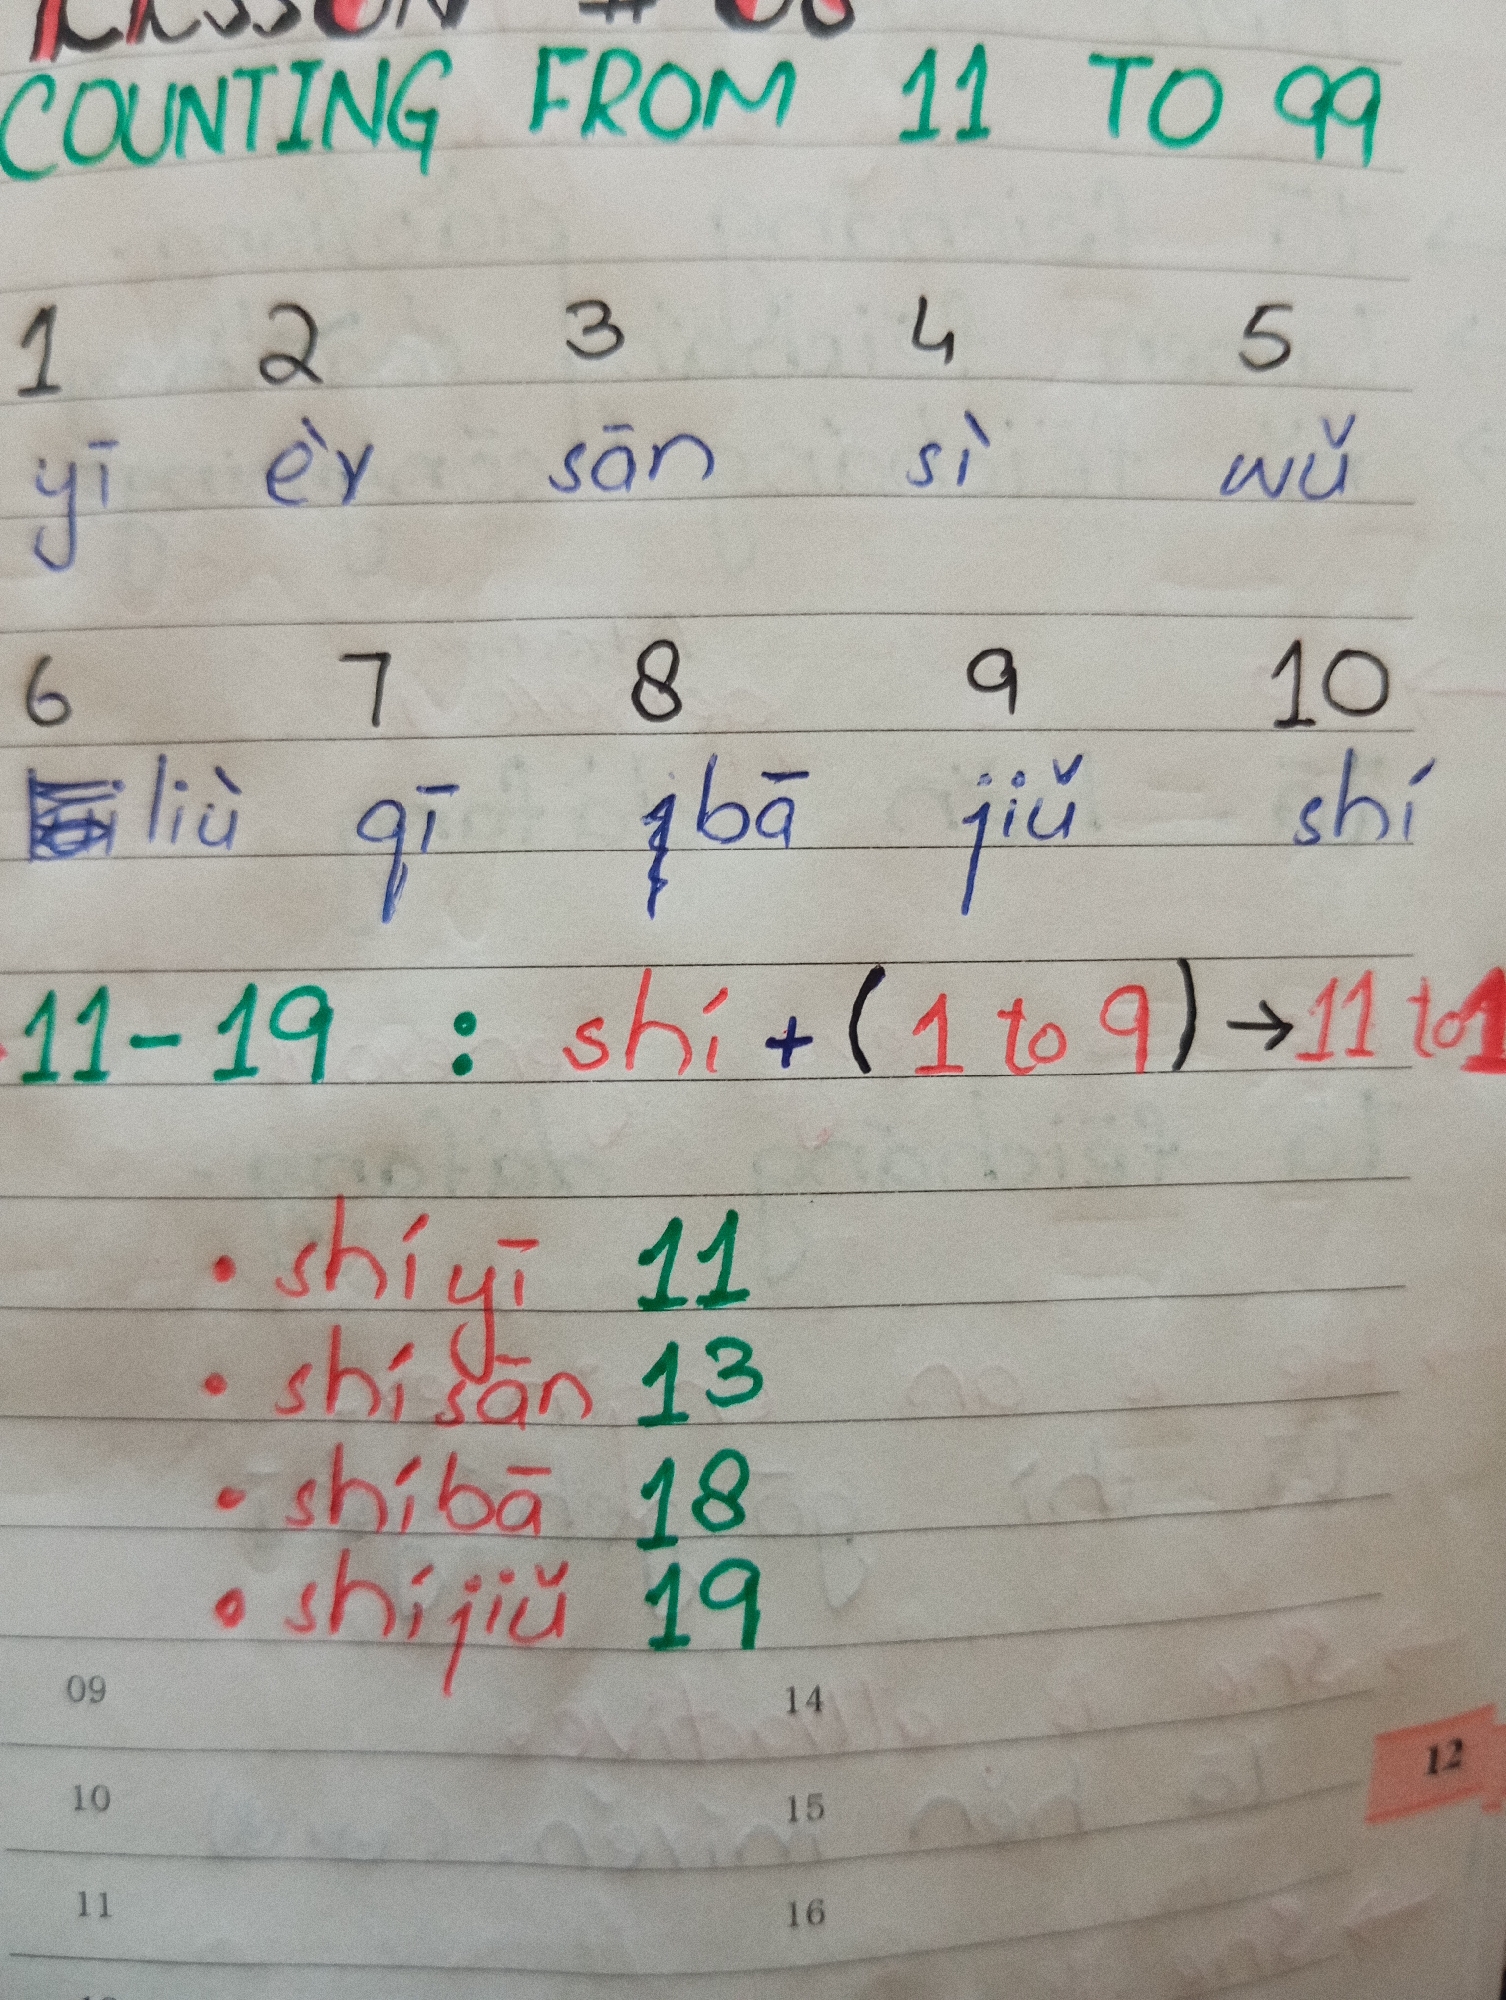 LESSON # 06
COUNTING FROM 11 TO 99
1 2 3 4 5
yī èr sān sì wǔ
6 7 8 9 10
liù qī bā jiǔ shí
11-19 : shí + (1 to 9) → 11 to 1
• shíyī 11
• shísān 13
• shíbā 18
• shíjiǔ 19
09 14
10 15
11 16
12